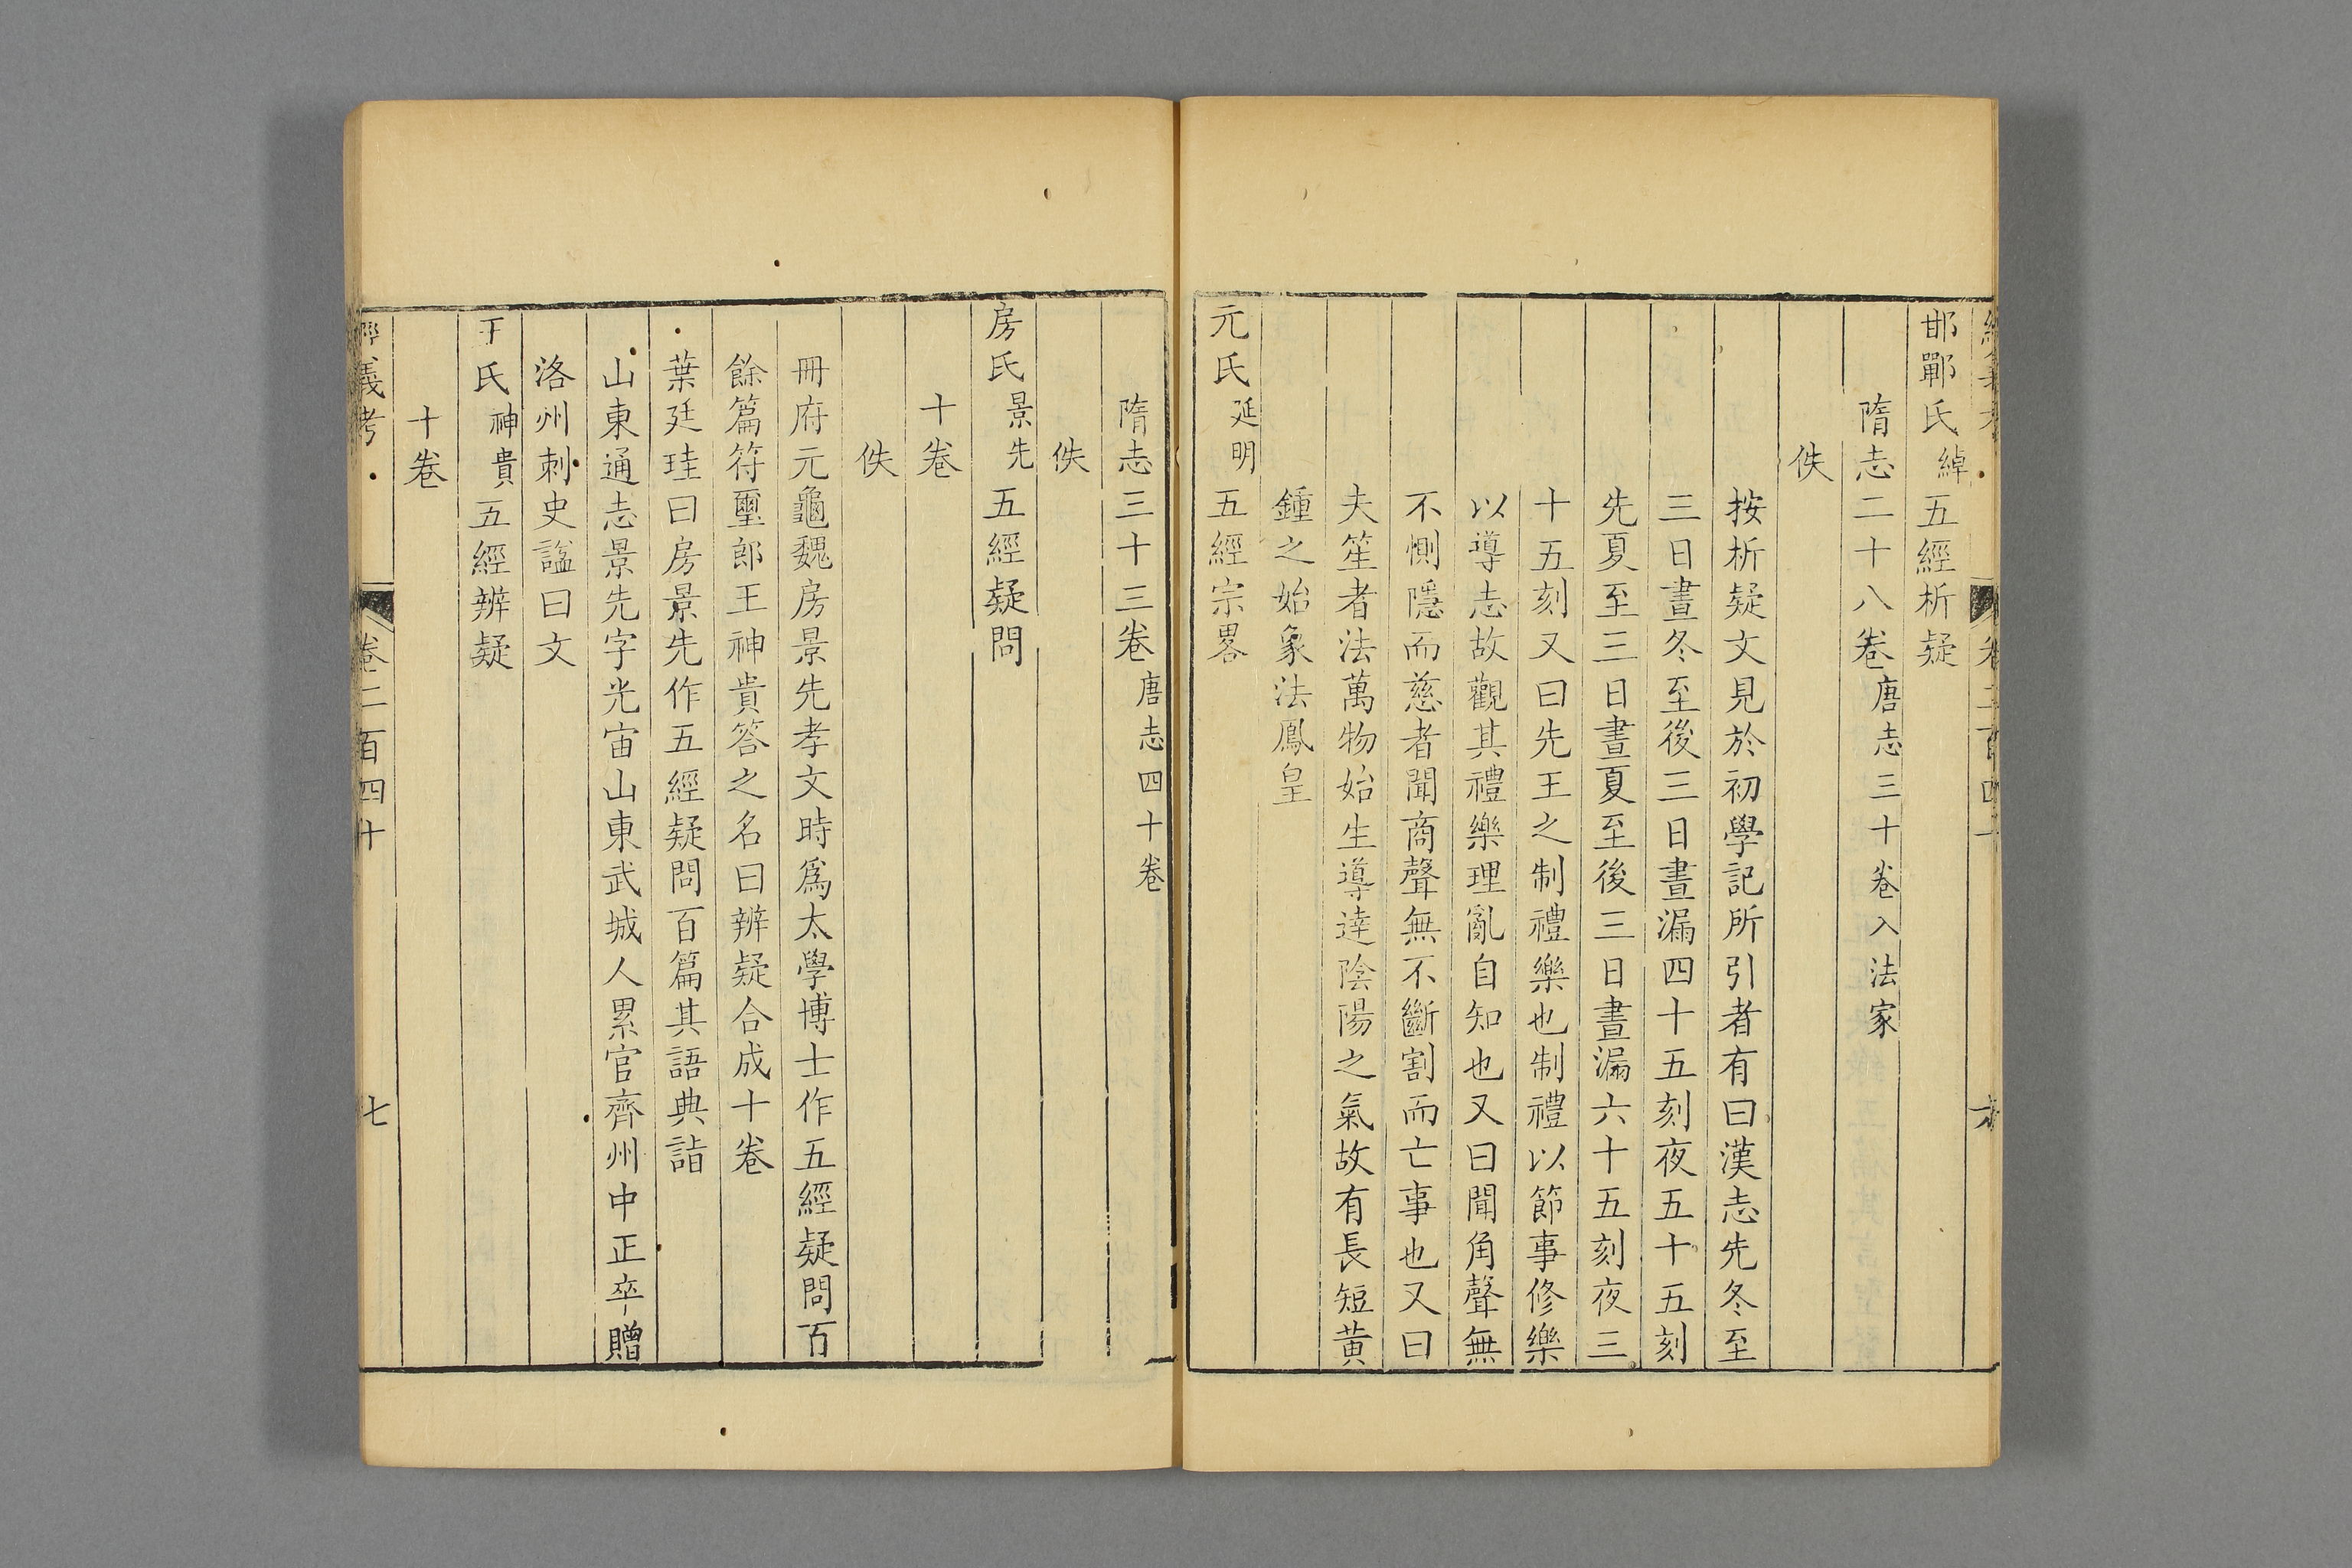 邯鄲氏綽五經析疑
隋志二十八卷唐志三十卷入法家
佚
按析疑文見於初學記所引者有曰漢志先冬至
三日晝冬至後三日晝漏四十五刻夜五十五刻
先夏至三日晝夏至後三日晝漏六十五刻夜三
十五刻又曰先王之制禮樂也制禮以節事修樂
以導志故觀其禮樂理亂自知也又曰聞角聲無
不惻隱而慈者聞商聲無不斷割而亡事也又曰
夫笙者法萬物始生導達陰陽之氣故有長短黃
鍾之始象法鳳皇
元氏延明五經宗畧
隋志三十三卷唐志四十卷
佚
房氏景先五經疑問
十卷
佚
冊府元龜魏房景先孝文時爲太學博士作五經疑問百
餘篇符璽郎王神貴答之名曰辨疑合成十卷
葉廷珪曰房景先作五經疑問百篇其語典詣
山東通志景先字光宙山東武城人累官齊州中正卒贈
洛州刺史諡曰文
王氏神貴五經辨疑
十卷
經義考 卷二百四十 七